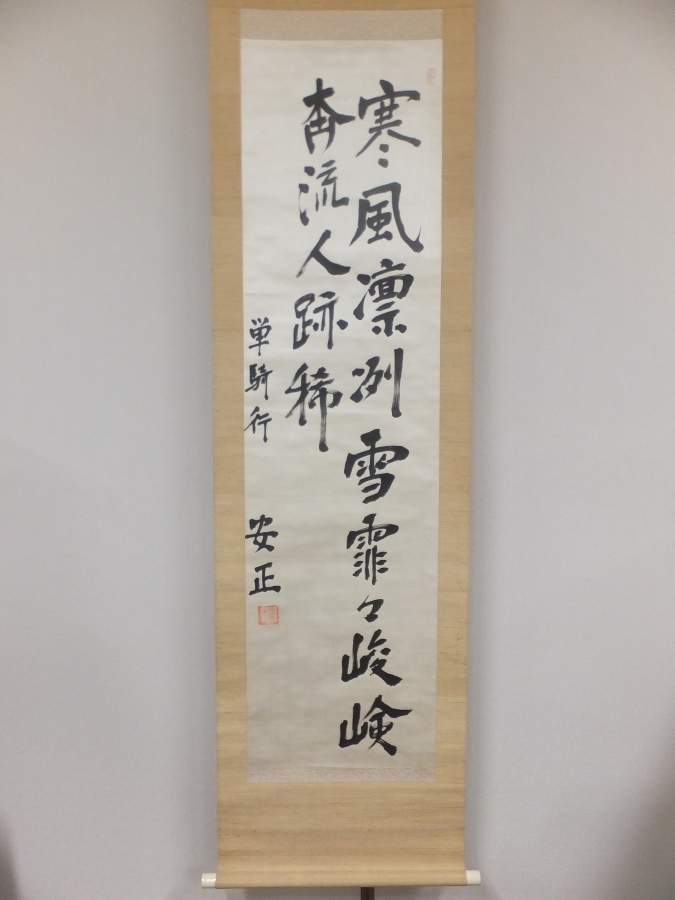 寒風凛冽雪霏々峻険
奔流人跡稀
単騎行
安正